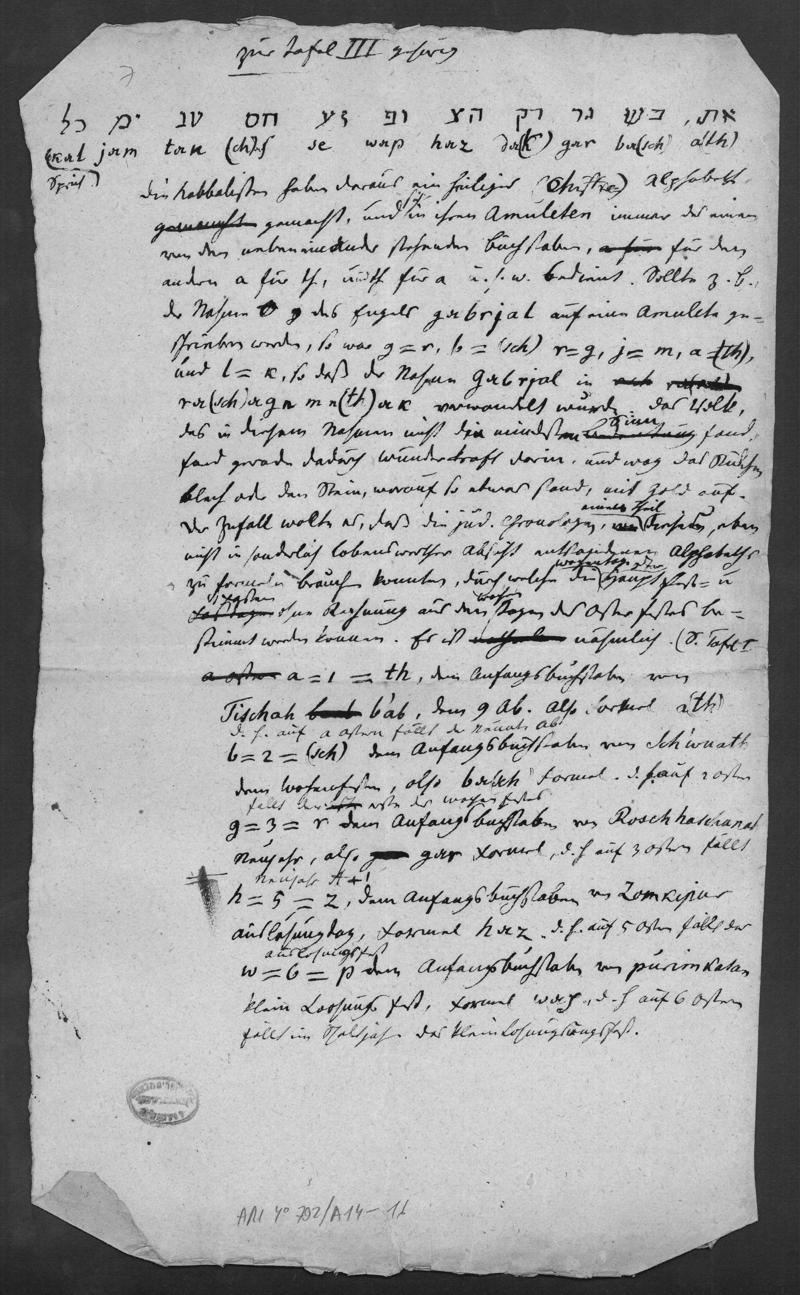 zur Tafel III gehörig
7
את, בש גר דק הצ ופ זע חס טנ ימ כל
(kal jam tan (ch)as se wap haz da(k) gar ba(sch) a(th)
Sprich)
Die Kabbalisten haben daraus ein heiliges (Chiffre) Alphabeth
gemacht gemacht, und in ihren Amuleten immer des einen
von den nebeneinander stehenden Buchstaben, a für für den
andern a für th, und th für a u. s. w. bedient. Sollte z. b.
der Nahme des Engels gabrjal auf einem Amulete ge-
schrieben werden, so war g = r, b = (sch) r = g, j = m, a = (th),
und l = k, so daß der Nahme Gabrjal in
ra(sch)agn mn(th)ak verwandelt wurde. das Volk,
das in diesem Nahmen nicht den mindesten Sinn fand,
fand gerade dadurch Wunderkraft darin, und wog das
blech oder den Stein, worauf so etwas stand, mit Gold auf.
Der Zufall wollte es, daß die jüd. Chronologen, einen Theil dieses, eben
nicht in sonderlich lobenswerther Absicht entstandenen Alphabeths
zu Formeln brauchen konnten, durch welche die Haupt Fest- u
Fasttage ohne Rechnung aus den Tagen des Osterfestes be-
stimmt werden können. Es ist nähmlich (S. Tafel I
a = 1 = th, dem Anfangsbuchstaben von
Tischah b'ab, dem 9 Ab. also Formel ath
d. h. auf a ostern fällt der 9te Ab
b = 2 = (sch) dem Anfangsbuchstaben von Schwuoth
dem Wochenfeste, also basch Formel. d. h. auf 2 ostern
fällt der erste des Wochenfestes
g = 3 = r dem Anfangsbuchstaben von Roschhaschanah
Neujahr, also gar Formel, d. h auf 3 ostern fällt
Neujahr A + 1
h = 5 = z, dem Anfangsbuchstaben von Zomkipur
auslösungstag, Formel haz. d. h. auf 5 ostern fällt der
auslösungsfest
w = 6 = p dem Anfangsbuchstaben von purimkatan
klein Loosungsfest, Formel wap, d. h auf 6 ostern
fällt im Schaltjahr das kleinlosungsfest.
ARI 4° 792/A14-11